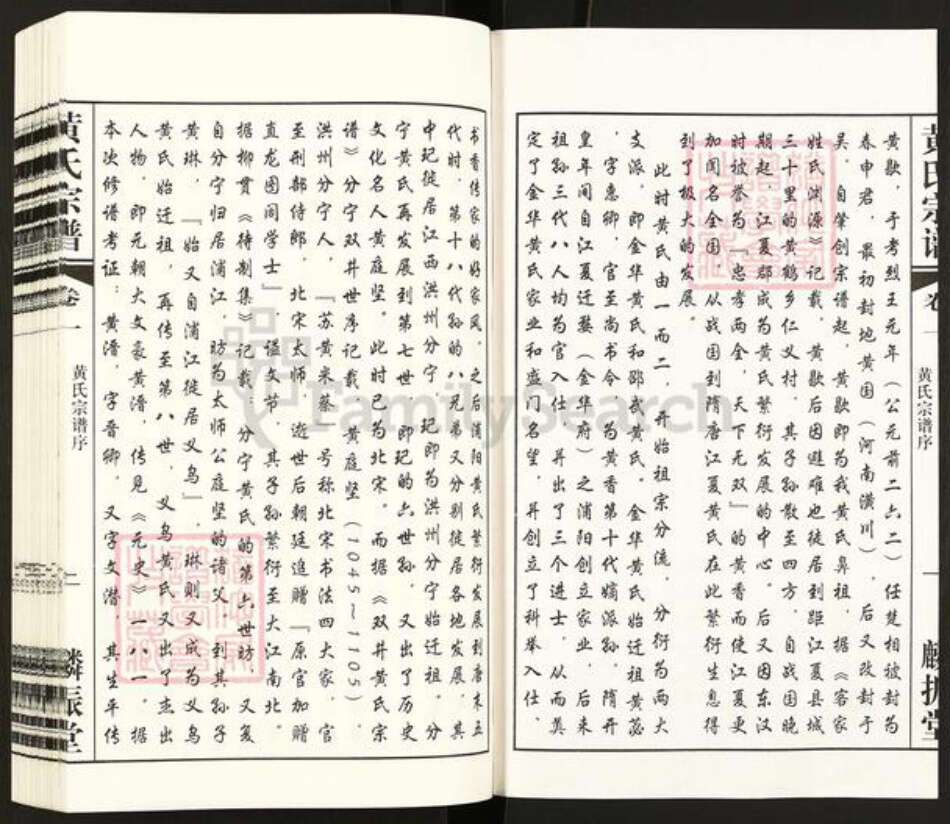 黄氏宗谱
卷一
黄氏宗谱序
一
麟振堂
黄歇，于考烈王元年（公元前二六二）任楚相被封为
春申君，最初封地黄国（河南潢川），后又改封于
吴。自肇创宗谱起，黄歇即为我黄氏鼻祖。据《客家
姓氏渊源》记载，黄歇后因避难也徒居到距江夏县城
三十里的黄鹤乡仁义村，其子孙散至四方，自战国晚
期起，江夏郡成为黄氏繁衍发展的中心。后又因东汉
时被誉为「忠孝两全，天下无双」的黄香而使江夏更
加闻名全国，从战国到隋唐江夏黄氏在此繁衍生息得
到了极大的发展。
此时黄氏由一而二，开始祖宗分流，分衍为两大
支派，即金华黄氏和邵武黄氏。金华黄氏始迁祖黄苾
，字惠卿，官至尚书令，为黄香第十代嫡派孙，隋开
皇年间自江夏迁婺（金华府）之浦阳创立家业，后来
祖孙三代八人均为官入仕，并出了三个进士，从而奠
定了金华黄氏家业和盛门名望，并创立了科举入仕、
书香传家的好家风。之后浦阳黄氏繁衍发展到唐末五
代时，第十八代孙的八兄弟又分别徙居各地发展，其
中玘徙居江西洪州分宁，玘即为洪州分宁始迁祖。分
宁黄氏再发展到第七世，即玘的六世孙，又出了历史
文化名人黄庭坚。此时已为北宋。而据《双井黄氏宗
谱》分宁双井世序记载，黄庭坚（1045～1105），
洪州分宁人，「苏黄米蔡」号称北宋书法四大家，官
至刑部侍郎，北宋太师，逝世后朝廷追赠「原官加赠
直龙图阁学士」，谥文节，其子孙繁衍至大江南北。
据柳贯《待制集》记载：分宁黄氏的第六世昉，又复
自分宁归居浦江，昉为太师公庭坚的诸父，到其孙子
黄琳，「始又自浦江徙居义乌」，琳则又成为义乌
黄氏始迁祖，再传至第八世，义乌黄氏又出了杰出
人物，即元朝大文豪黄溍，传见《元史》一八一。据
本次修谱考证：黄溍，字晋卿，又字文潜，其生平传
黄氏宗谱
卷一
黄氏宗谱序
二
麟振堂
FamilySearch